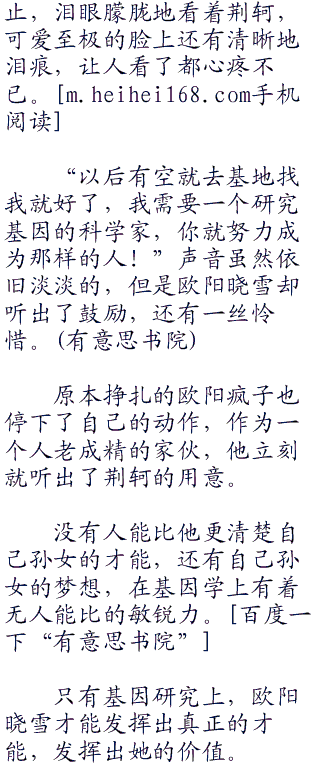 止，泪眼朦胧地看着荆轲，
可爱至极的脸上还有清晰地
泪痕，让人看了都心疼不
已。[m.heihei168.com手机
阅读]
“以后有空就去基地找
我就好了，我需要一个研究
基因的科学家，你就努力成
为那样的人！”声音虽然依
旧淡淡的，但是欧阳晓雪却
听出了鼓励，还有一丝怜
惜。(有意思书院)
原本挣扎的欧阳疯子也
停下了自己的动作，作为一
个人老成精的家伙，他立刻
就听出了荆轲的用意。
没有人能比他更清楚自
己孙女的才能，还有自己孙
女的梦想，在基因学上有着
无人能比的敏锐力。[百度一
下“有意思书院”]
只有基因研究上，欧阳
晓雪才能发挥出真正的才
能，发挥出她的价值。